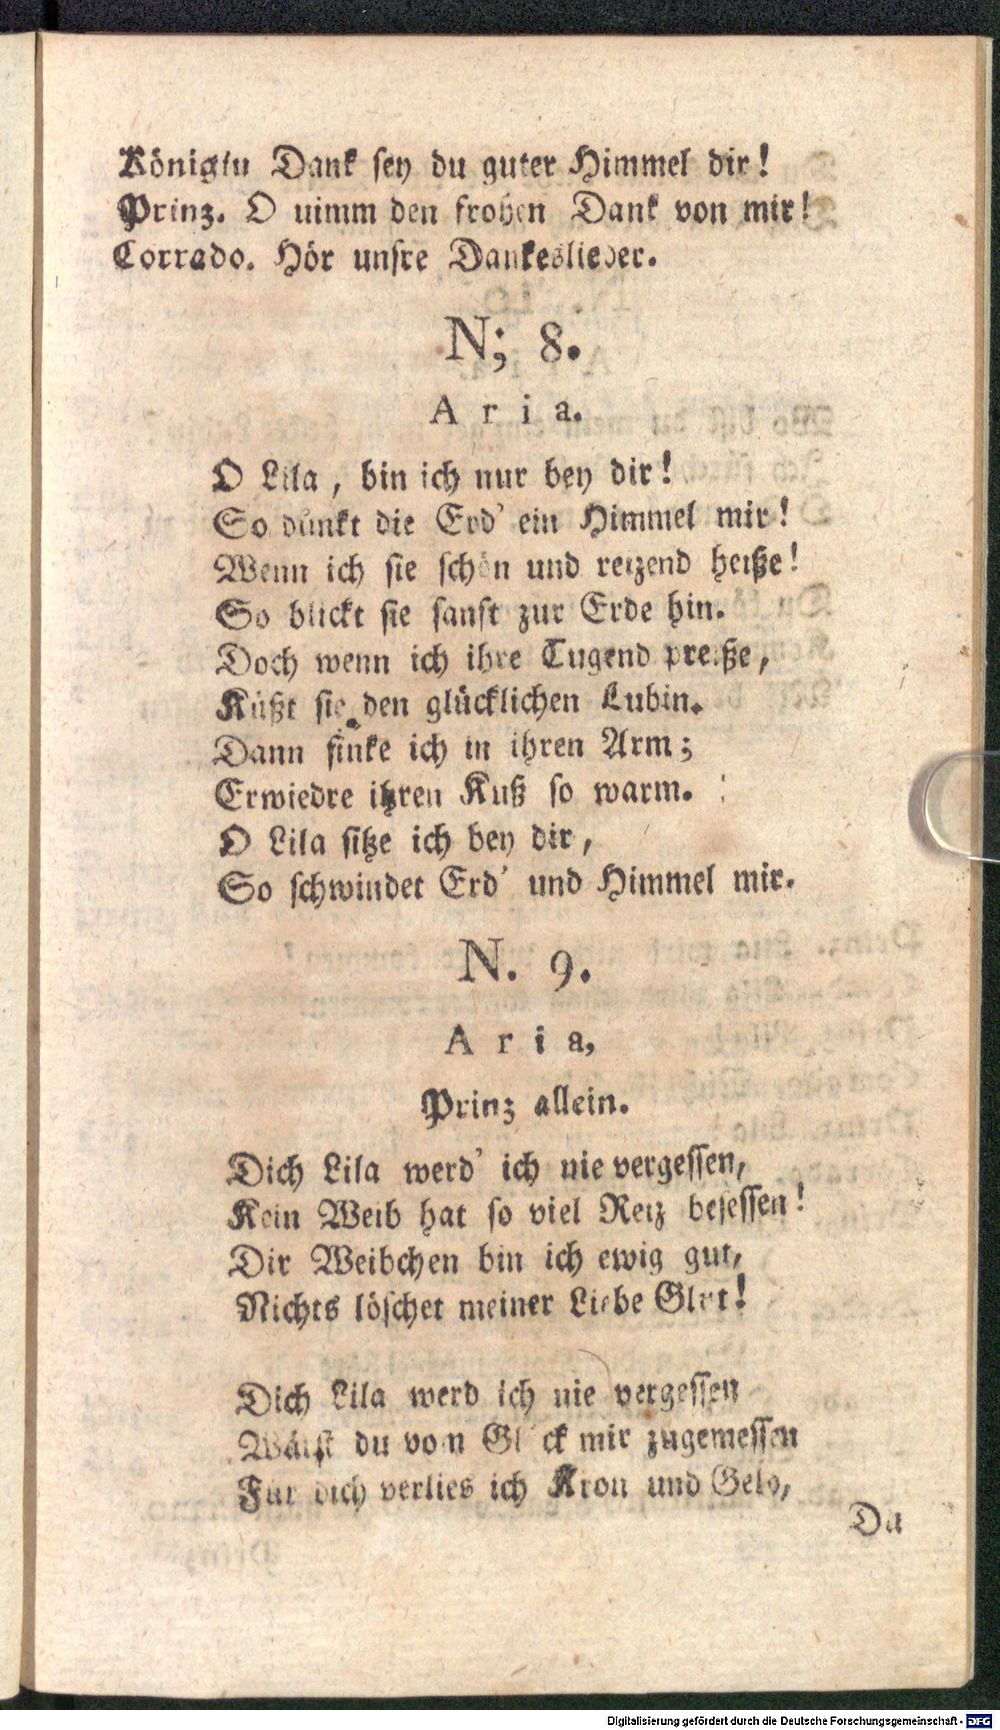 Königin Dank sey du guter Himmel dir!
Prinz. O nimm den frohen Dank von mir!
Corrado. Hör unsre Dankeslieder.
N; 8.
Aria.
O Lila, bin ich nur bey dir!
So dünkt die Erd' ein Himmel mir!
Wenn ich sie schön und reizend heiße!
So blickt sie sanft zur Erde hin.
Doch wenn ich ihre Tugend preiße,
Küßt sie den glücklichen Lubin.
Dann sinke ich in ihren Arm;
Erwiedre ihren Kuß so warm.
O Lila sitze ich bey dir,
So schwindet Erd' und Himmel mir.
N. 9.
Aria,
Prinz allein.
Dich Lila werd' ich nie vergessen,
Kein Weib hat so viel Reiz besessen!
Dir Weibchen bin ich ewig gut,
Nichts löschet meiner Liebe Glut!
Dich Lila werd ich nie vergessen
Wärst du vom Glück mir zugemessen
Für dich verlies ich Kron und Geld,
Da
Digitalisierung gefördert durch die Deutsche Forschungsgemeinschaft - DFG